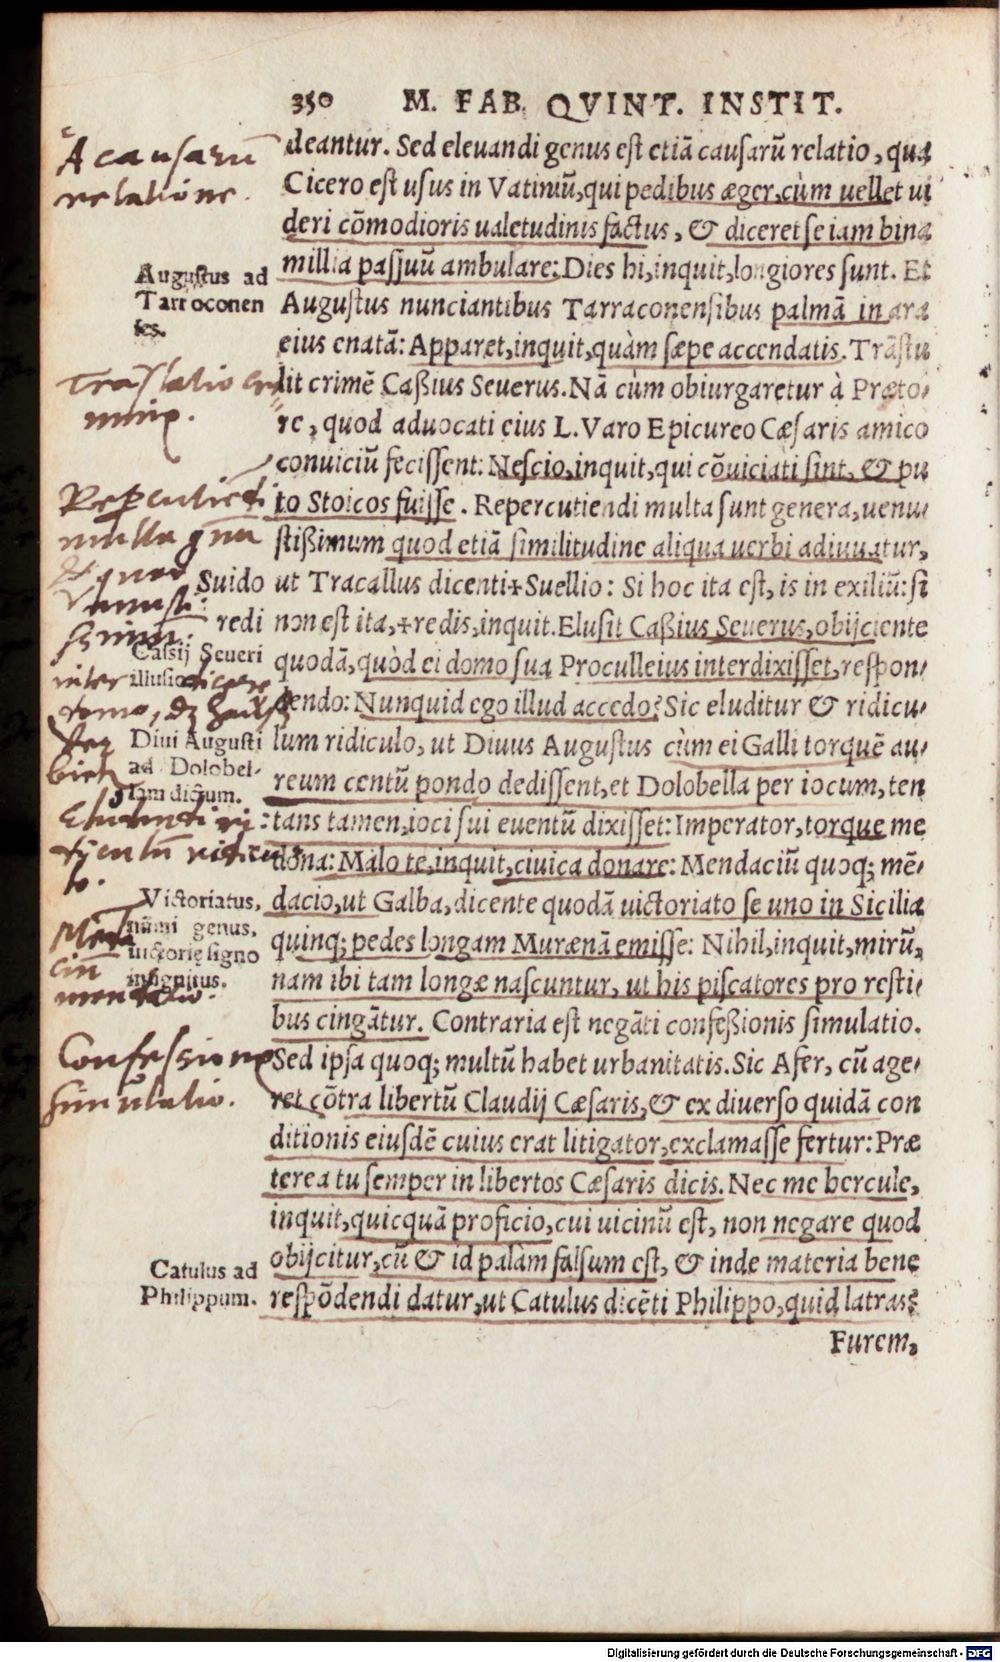 350 M. FAB. QVINT. INSTIT.
deantur. Sed eleuandi genus est etiā causarū relatio, qua
Cicero est usus in Vatiniū, qui pedibus æger, cùm uellet ui
deri cōmodioris ualetudinis factus, & diceret se iam bina
millia passuū ambulare: Dies hi, inquit, longiores sunt. Et
Augustus nunciantibus Tarraconensibus palmā in ara
eius enatā: Apparet, inquit, quàm sæpe accendatis. Trāstu
lit crimē Caßius Seuerus. Nā cùm obiurgaretur à Præto-
re, quod aduocati eius L. Varo Epicureo Cæsaris amico
conuiciū fecissent: Nescio, inquit, qui cōuiciati sint, & pu
to Stoicos fuisse. Repercutiendi multa sunt genera, uenu-
stißimum quod etiā similitudine aliqua uerbi adiuuatur,
ut Tracallus dicenti+Suellio: Si hoc ita est, is in exiliū: si
non est ita,+redis, inquit. Elusit Caßius Seuerus, obijciente
quodā, quòd ei domo sua Proculleius interdixisset, respon-
dendo: Nunquid ego illud accedo? Sic eluditur & ridicu-
lum ridiculo, ut Diuus Augustus cùm ei Galli torquē au-
reum centū pondo dedissent, et Dolobella per iocum, ten
tans tamen, ioci sui euentū dixisset: Imperator, torque me
dona: Malo te, inquit, ciuica donare: Mendaciū quoq; mē-
dacio, ut Galba, dicente quodā uictoriato se uno in Sicilia
quinq; pedes longam Murænā emisse: Nihil, inquit, mirū,
nam ibi tam longæ nascuntur, ut his piscatores pro resti-
bus cingātur. Contraria est negāti confeßionis simulatio.
Sed ipsa quoq; multū habet urbanitatis. Sic Afer, cū age-
ret cōtra libertū Claudij Cæsaris, & ex diuerso quidā con
ditionis eiusdē cuius erat litigator, exclamasse fertur: Præ
terea tu semper in libertos Cæsaris dicis. Nec me hercule,
inquit, quicquā proficio, cui uicinū est, non negare quod
obijcitur, cū & id palàm falsum est, & inde materia bene
respōdendi datur, ut Catulus dicēti Philippo, quid latras?
Furem,
A causarū
relatione.
Augustus ad
Tarroconen
ses.
Traslatio
Suido
redi
Cassij Seueri
illusio
Diui Augusti
ad Dolobel-
lam dictum.
Victoriatus,
nūmi genus,
uictorię signo
insignitus.
Confessionis
simulatio.
Catulus ad
Philippum.
Digitalisierung gefördert durch die Deutsche Forschungsgemeinschaft - DFG